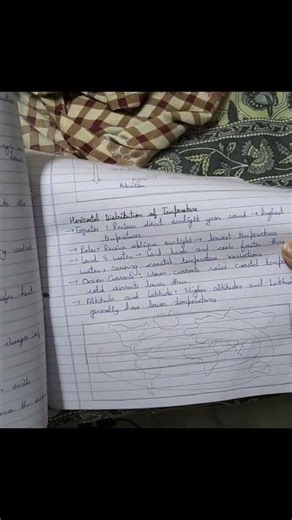 Advection
Horizontal Distribution of Temperature
→ Equator : Receives direct sunlight year round → highest
temperatures
→ Poles : Receive oblique sunlight → lowest temperatures
→ Land & water → Land heats and cools faster than
water, causing coastal temperature variations
→ Ocean Currents : Warm currents raise coastal temp
cold currents lower them.
→ Altitude and Latitude : Higher altitudes and latitudes
generally have lower temperatures.
changes